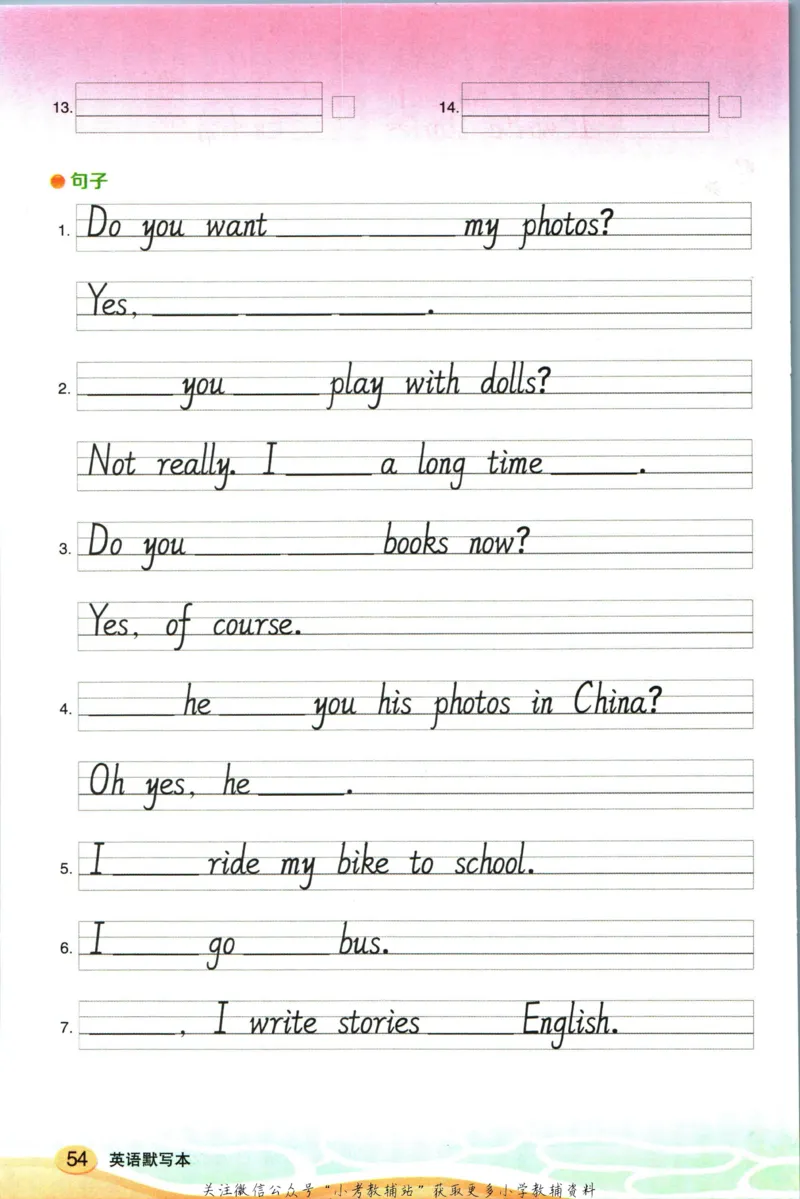 13. 14.
句子
1. Do you want ______ ______ my photos?
Yes, ______ ______ ______.
2. ______ you ______ play with dolls?
Not really. I ______ a long time ______.
3. Do you ______ ______ books now?
Yes, of course.
4. ______ he ______ you his photos in China?
Oh yes, he ______.
5. I ______ ride my bike to school.
6. I ______ go ______ bus.
7. ______, I write stories ______ English.
54 英语默写本
关注微信公众号“小考教辅站”获取更多小学教辅资料